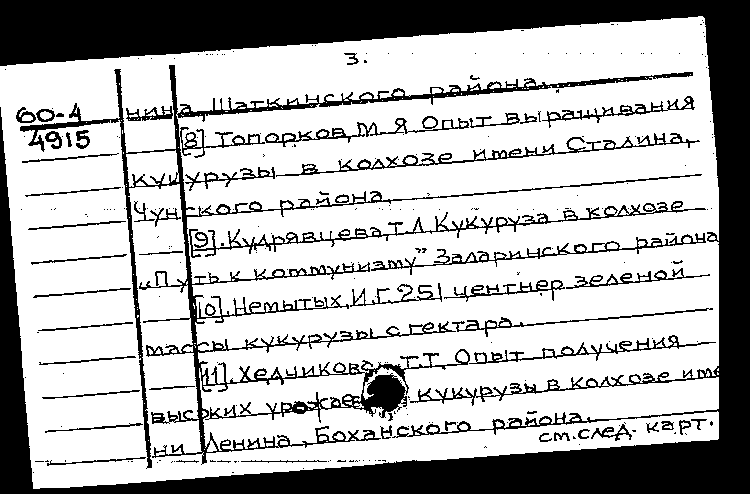 3.
60-4
4915
нина, Шаткинского района.
[8] Топорков, М. Я Опыт выращивания
кукурузы в колхозе имени Сталина,
Чунского района.
[9]. Кудрявцева, Т.Л. Кукуруза в колхозе
„Путь к коммунизму" Заларинского района
[10]. Немытых, И.Г. 251 центнер зеленой
массы кукурузы с гектара.
[11]. Хедчикова, Т.Т. Опыт получения
высоких урожаев кукурузы в колхозе име
ни Ленина, Боханского района.
см. след. карт.